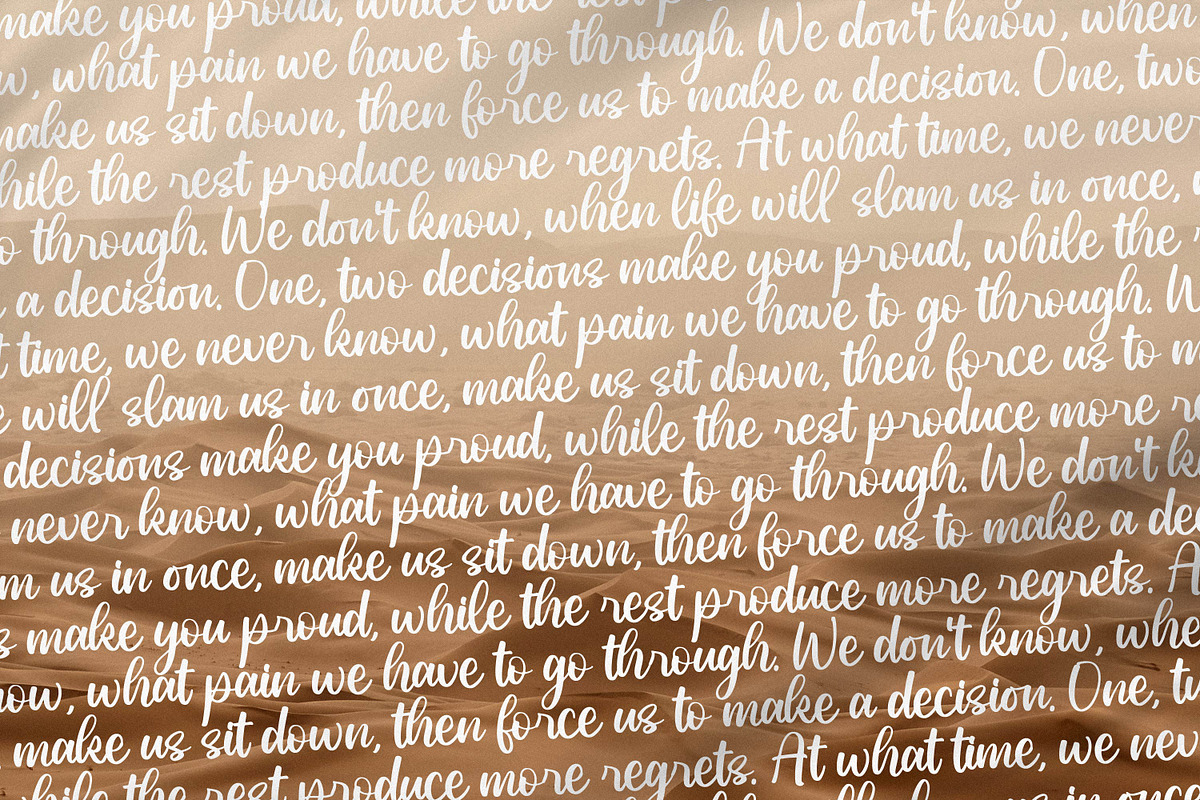 make you proud, while the rest p
w, what pain we have to go through. We don't know, when
make us sit down, then force us to make a decision. One, two
hile the rest produce more regrets. At what time, we never
o through. We don't know, when life will slam us in once,
a decision. One, two decisions make you proud, while the
t time, we never know, what pain we have to go through. W
will slam us in once, make us sit down, then force us to m
decisions make you proud, while the rest produce more r
never know, what pain we have to go through. We don't k
m us in once, make us sit down, then force us to make a de
s make you proud, while the rest produce more regrets. A
now, what pain we have to go through. We don't know, whe
make us sit down, then force us to make a decision. One, tw
while the rest produce more regrets. At what time, we nev
us in once